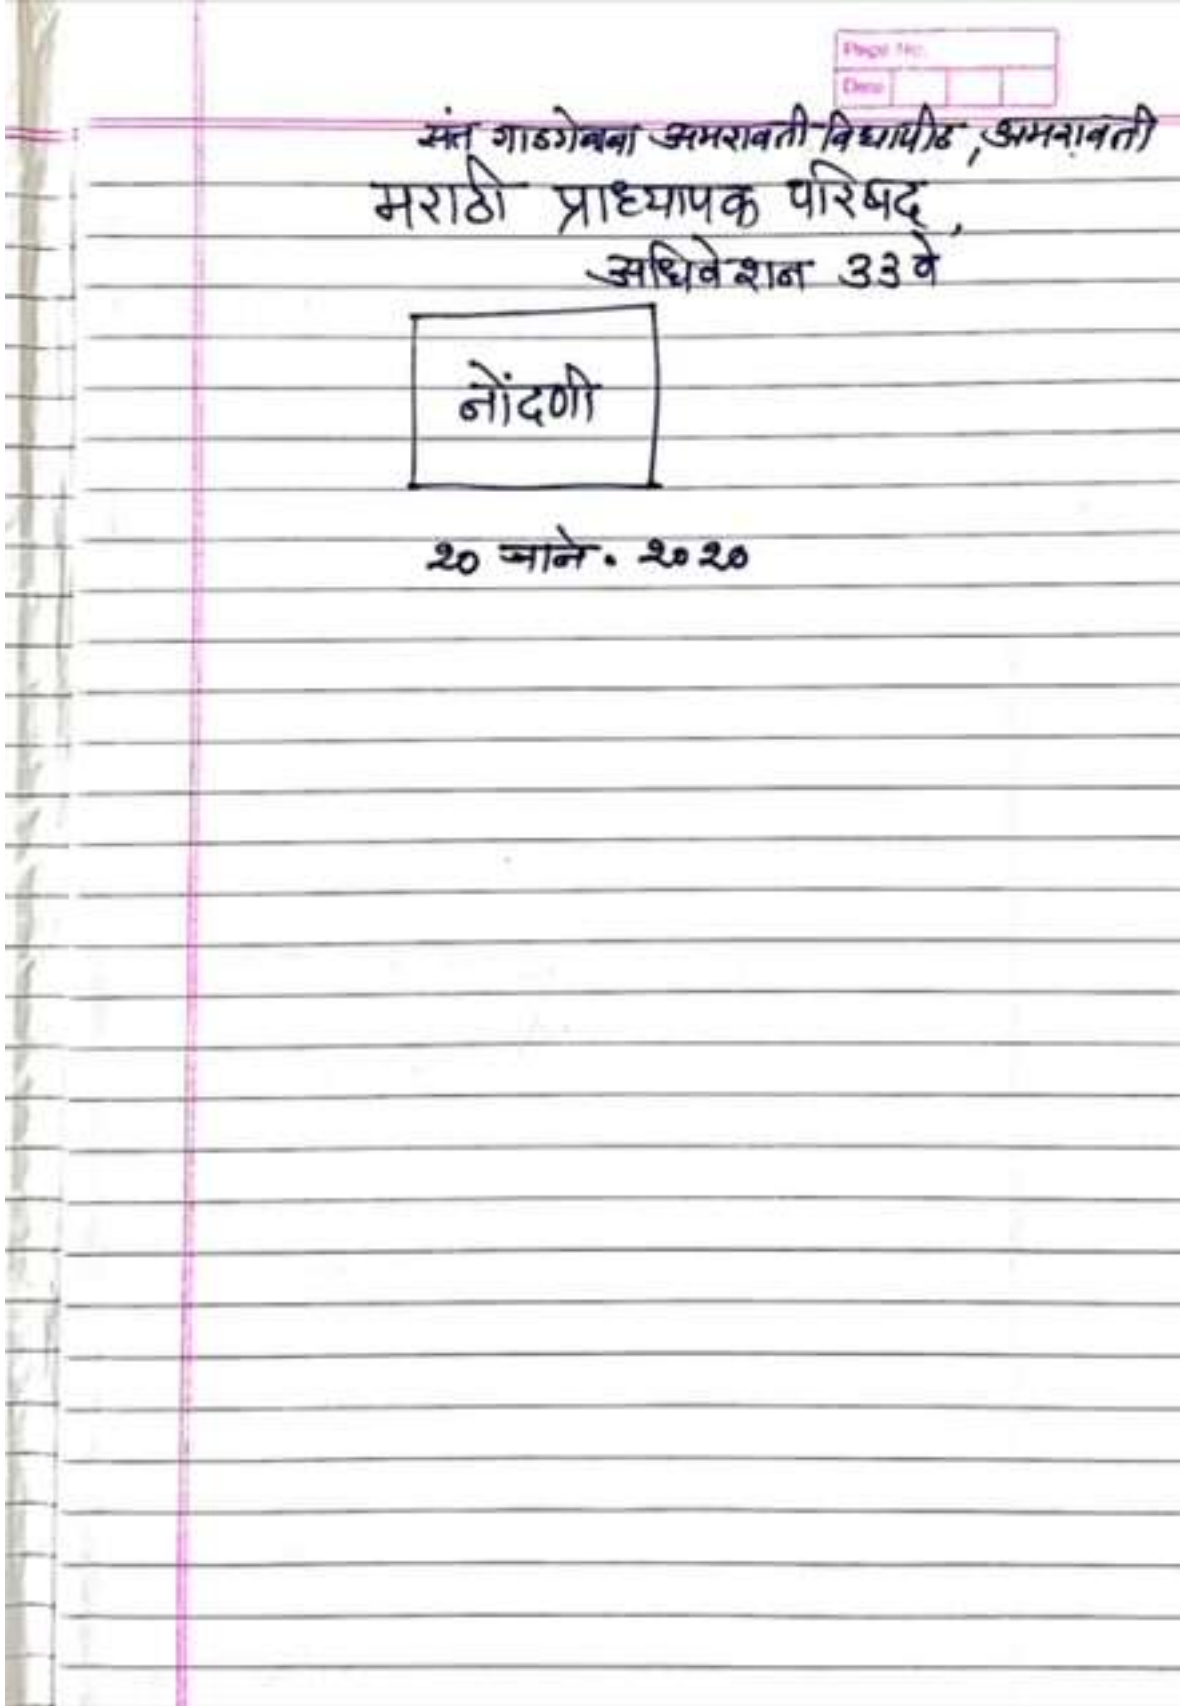 Page No.
Date
संत गाडगेबाबा अमरावती विद्यापीठ, अमरावती
मराठी प्राध्यापक परिषद,
अधिवेशन ३३ वे
नोंदणी
२० जाने. २०२०